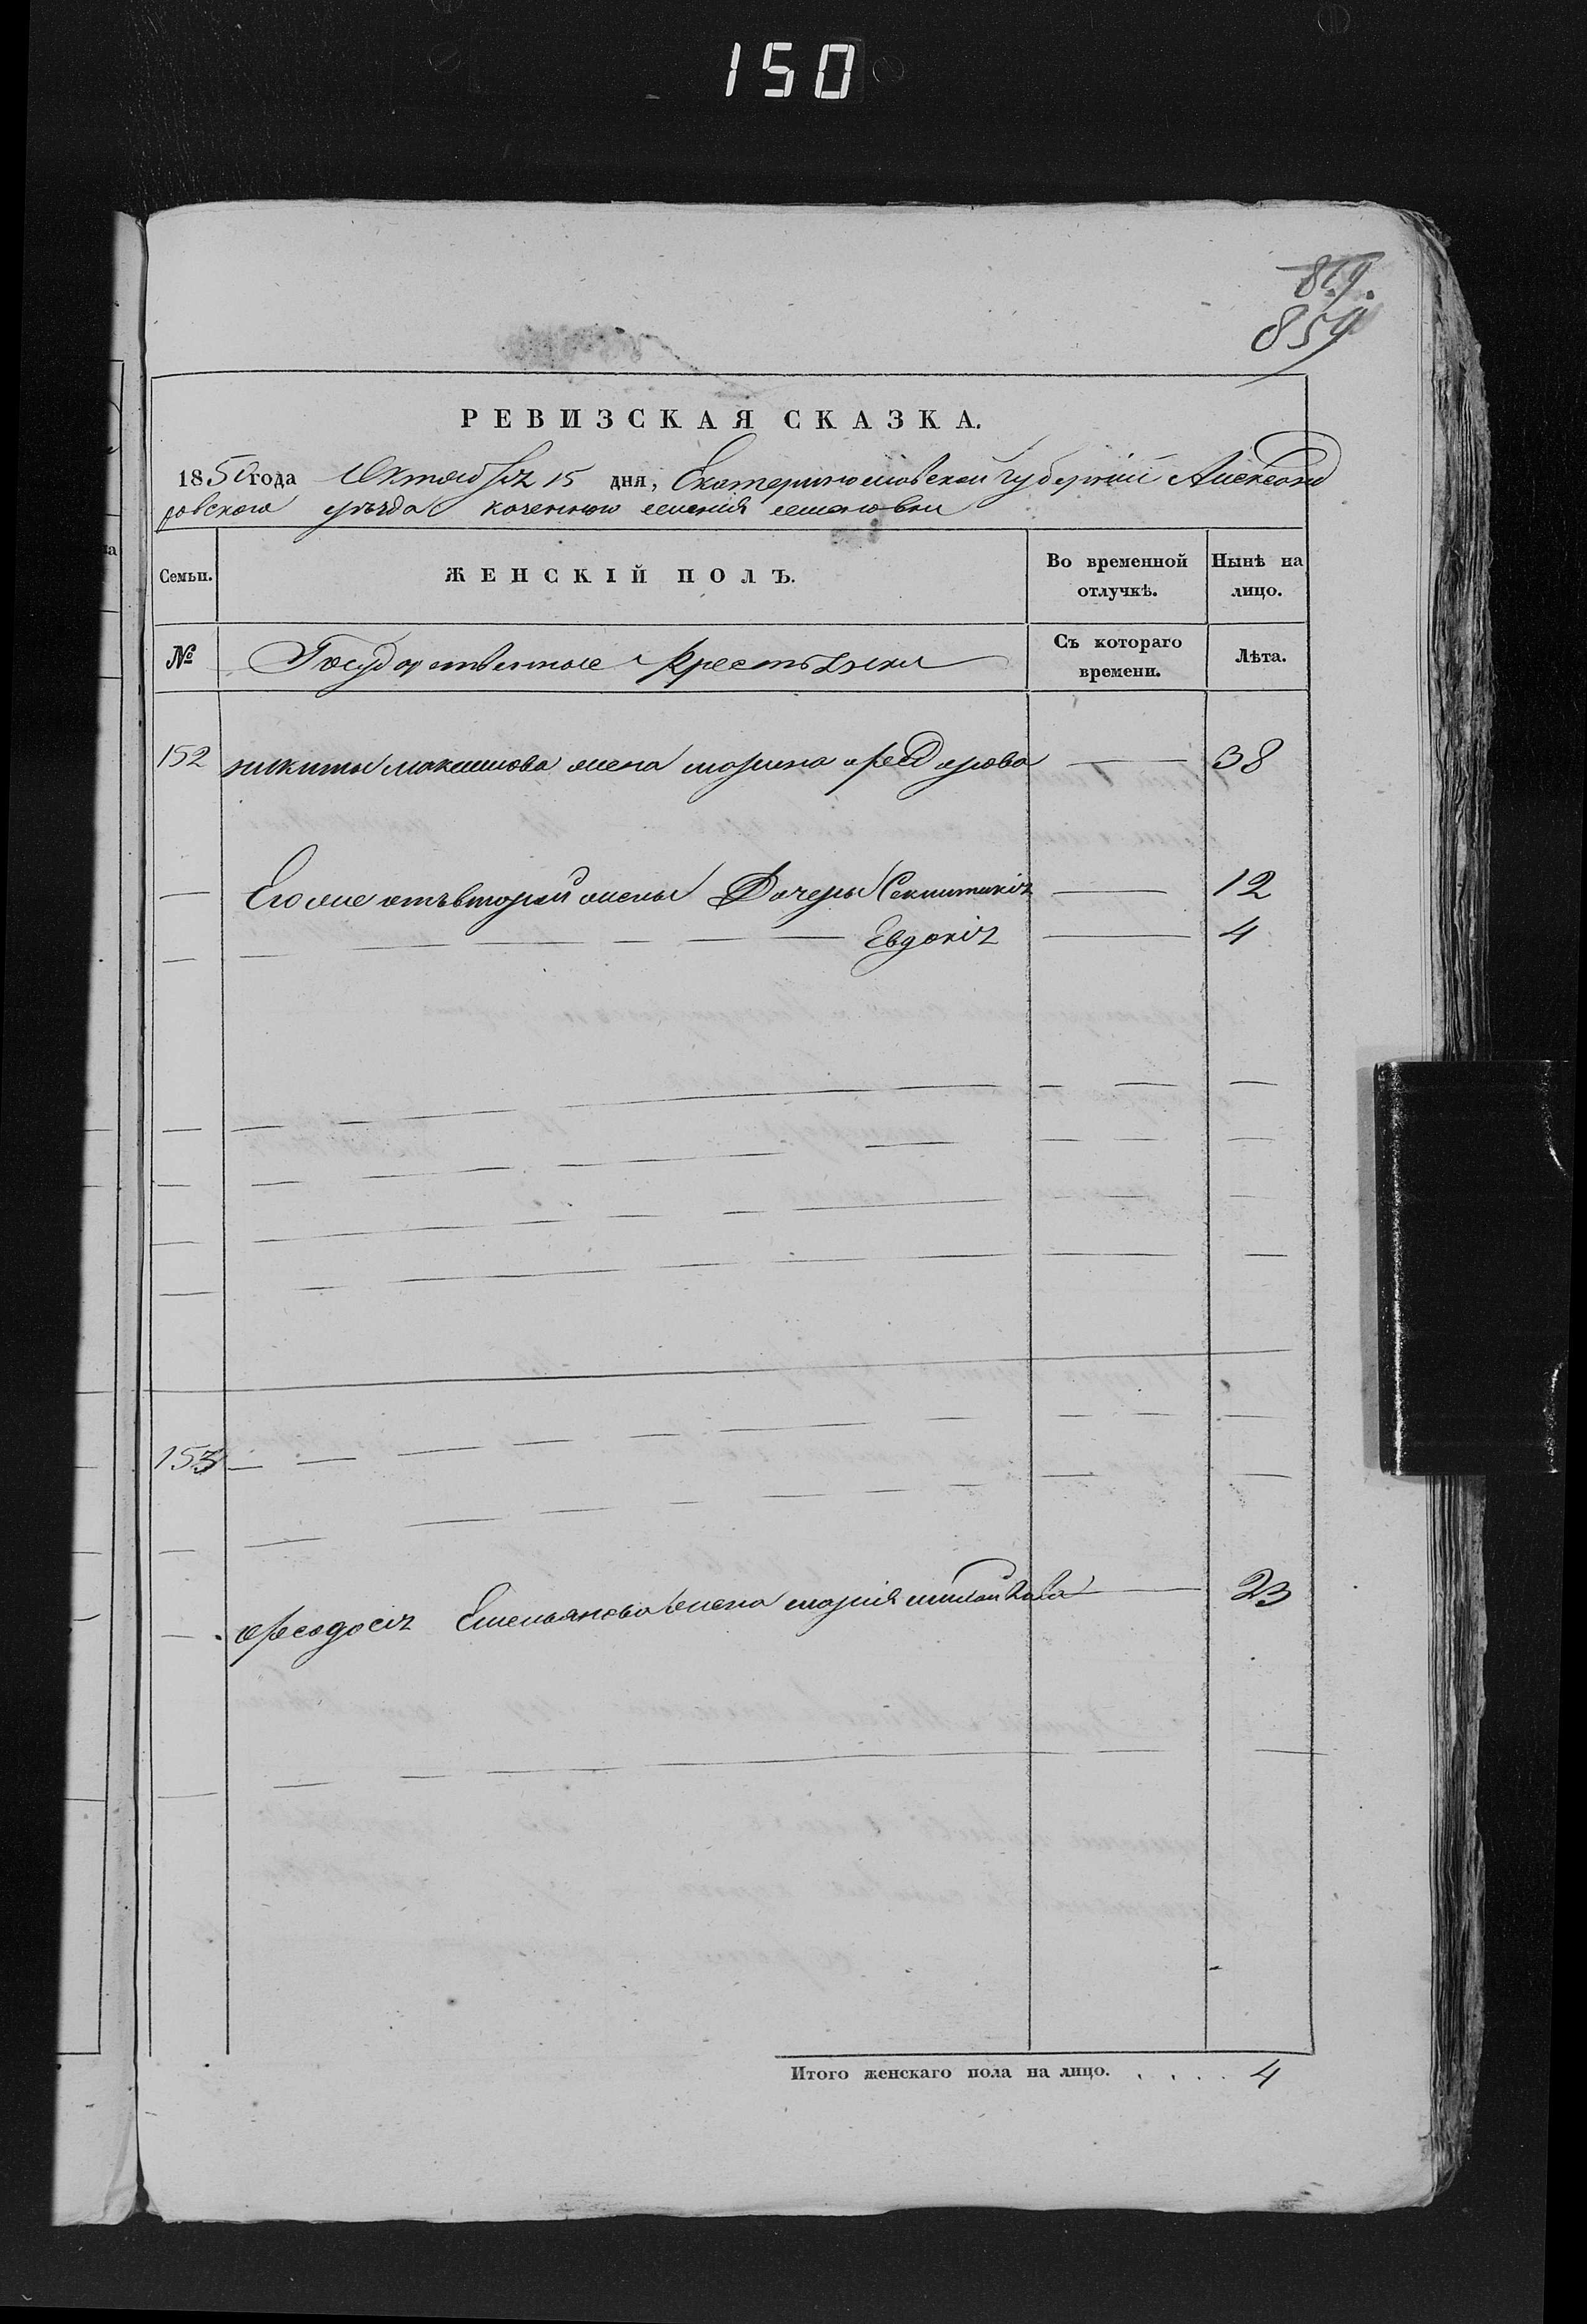 150
819.
859
РЕВИЗСКАЯ СКАЗКА.
1850 года Октября 15 дня, Екатеринославской губернии Александ
ровского уезда казенного селения
Семьи.
ЖЕНСКІЙ ПОЛЪ.
Во временной отлучкѣ.
Нынѣ на лицо.
№
Государственные Крестьяне
Съ котораго времени.
Лѣта.
152 никиты максимова жена марина федорова — 38
— Его же отъ второй жены Дочери — 12
— Евдокія — 4
153
— феодосія Емельянова жена марія — 23
Итого женскаго пола на лицо. . . . . 4